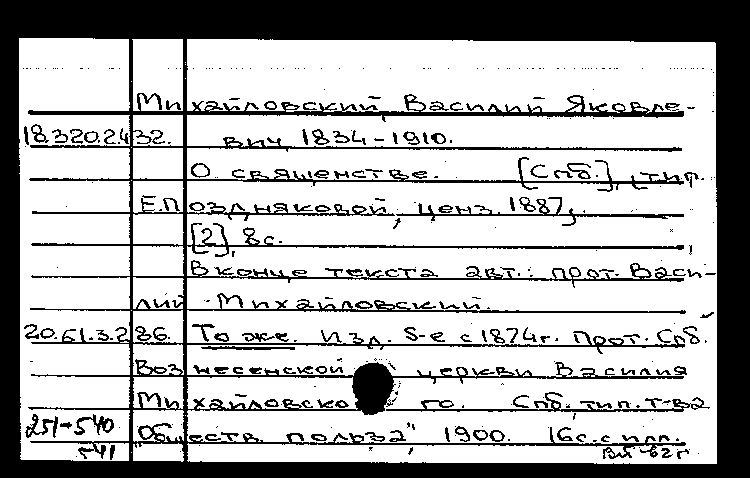 Михайловский, Василий Яковле-
18.320.2432. вич, 1834-1910.
О священстве. [Спб.], тип.
Е.Поздняковой, ценз. 1887,
[2], 8с.
В конце текста авт.: прот. Васи-
лий Михайловский.
20.61.3.286. То же. Изд. 5-е с 1874г. Прот. Спб.
Вознесенской церкви Василия
Михайловского. Спб, тип. т-ва
251-540 "Обществ. польза", 1900. 16с. с илл.
541